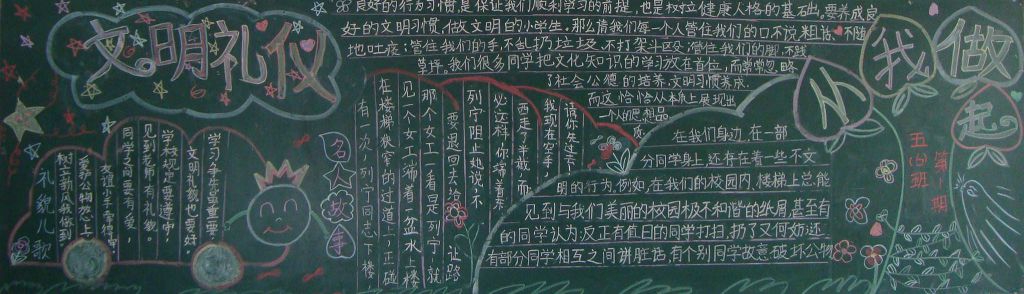 文明礼仪
良好的行为习惯,是保证我们顺利学习的前提,也是树立健康人格的基础。要养成良
好的文明习惯,做文明的小学生,那么请我们每一个人管住我们的口不说粗话、不随
地吐痰;管住我们的手,不乱扔垃圾,不打架斗殴;管住我们的脚,不践
草坪。我们很多同学把文化知识的学习放在首位,而常常忽略
了社会公德的培养,文明习惯养成,
而这恰恰从本质上展现出
一个人的思想品
质。
从我做起
五(四)班
第1期
礼貌儿歌
学习争先最重要,
文明礼貌也要好
学校规定要遵守,
见到老师有礼貌。
同学之间要有爱,
爱护公物放心上,
树立新风我做到
名人故事
有一次,列宁同志下楼,
在楼梯狭窄的过道上,正碰
见一个女工端着一盆水上楼
那个女工一看是列宁,就
要退回去给
让路
列宁阻止她说:不
必这样,你端着
西走了半截,而
我现在空手,
请你先过去
在我们身边,在一部
分同学身上,还存在着一些不文
明的行为,例如,在我们的校园内,楼梯上总能
见到与我们美丽的校园极不和谐的纸屑,甚至有
的同学认为:反正有值日的同学打扫,扔了又何妨;还
有部分同学相互之间讲脏话,有个别同学故意破坏公物